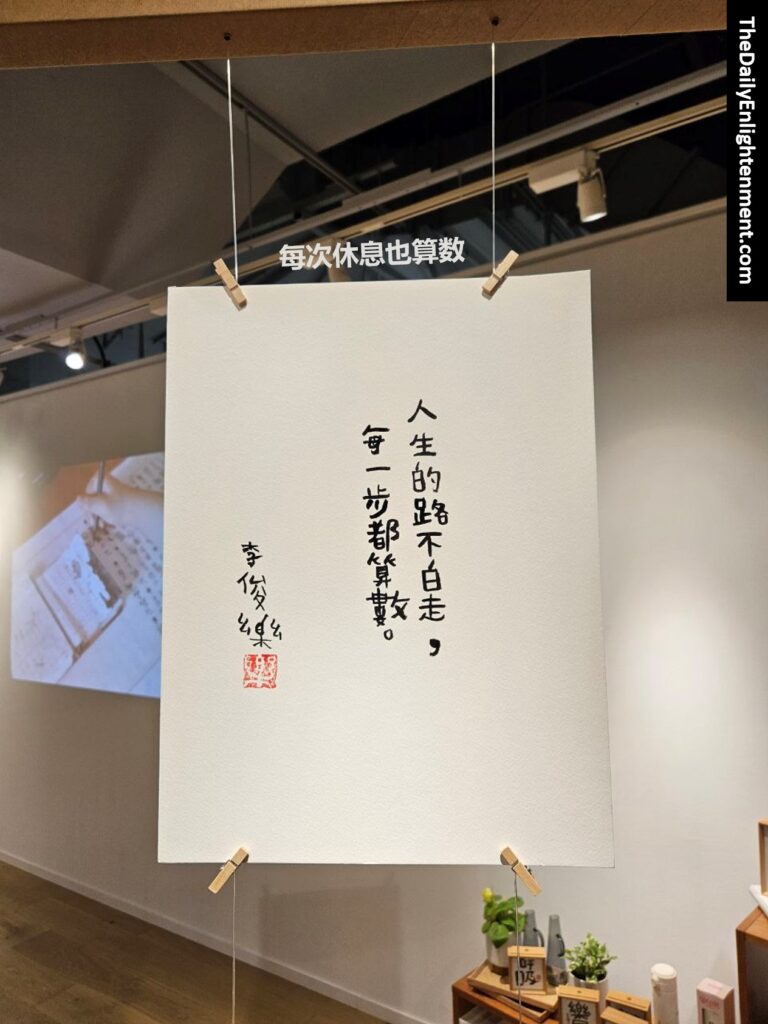 TheDailyEnlightenment.com
每次休息也算数
人生的路不白走，
每一步都算數。
李俊樂
呼吸
樂